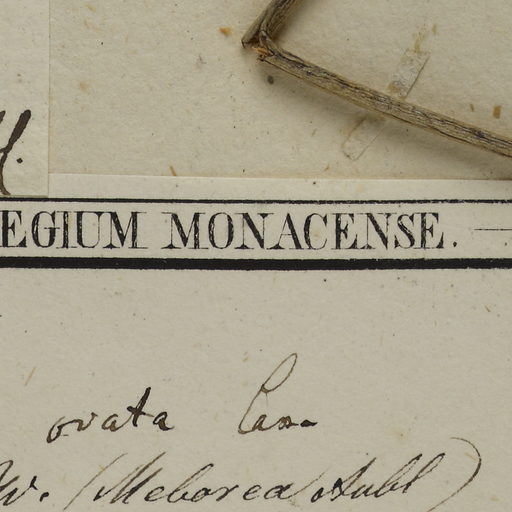 EGIUM MONACENSE.
ovata
W. (Meborea Aubl)